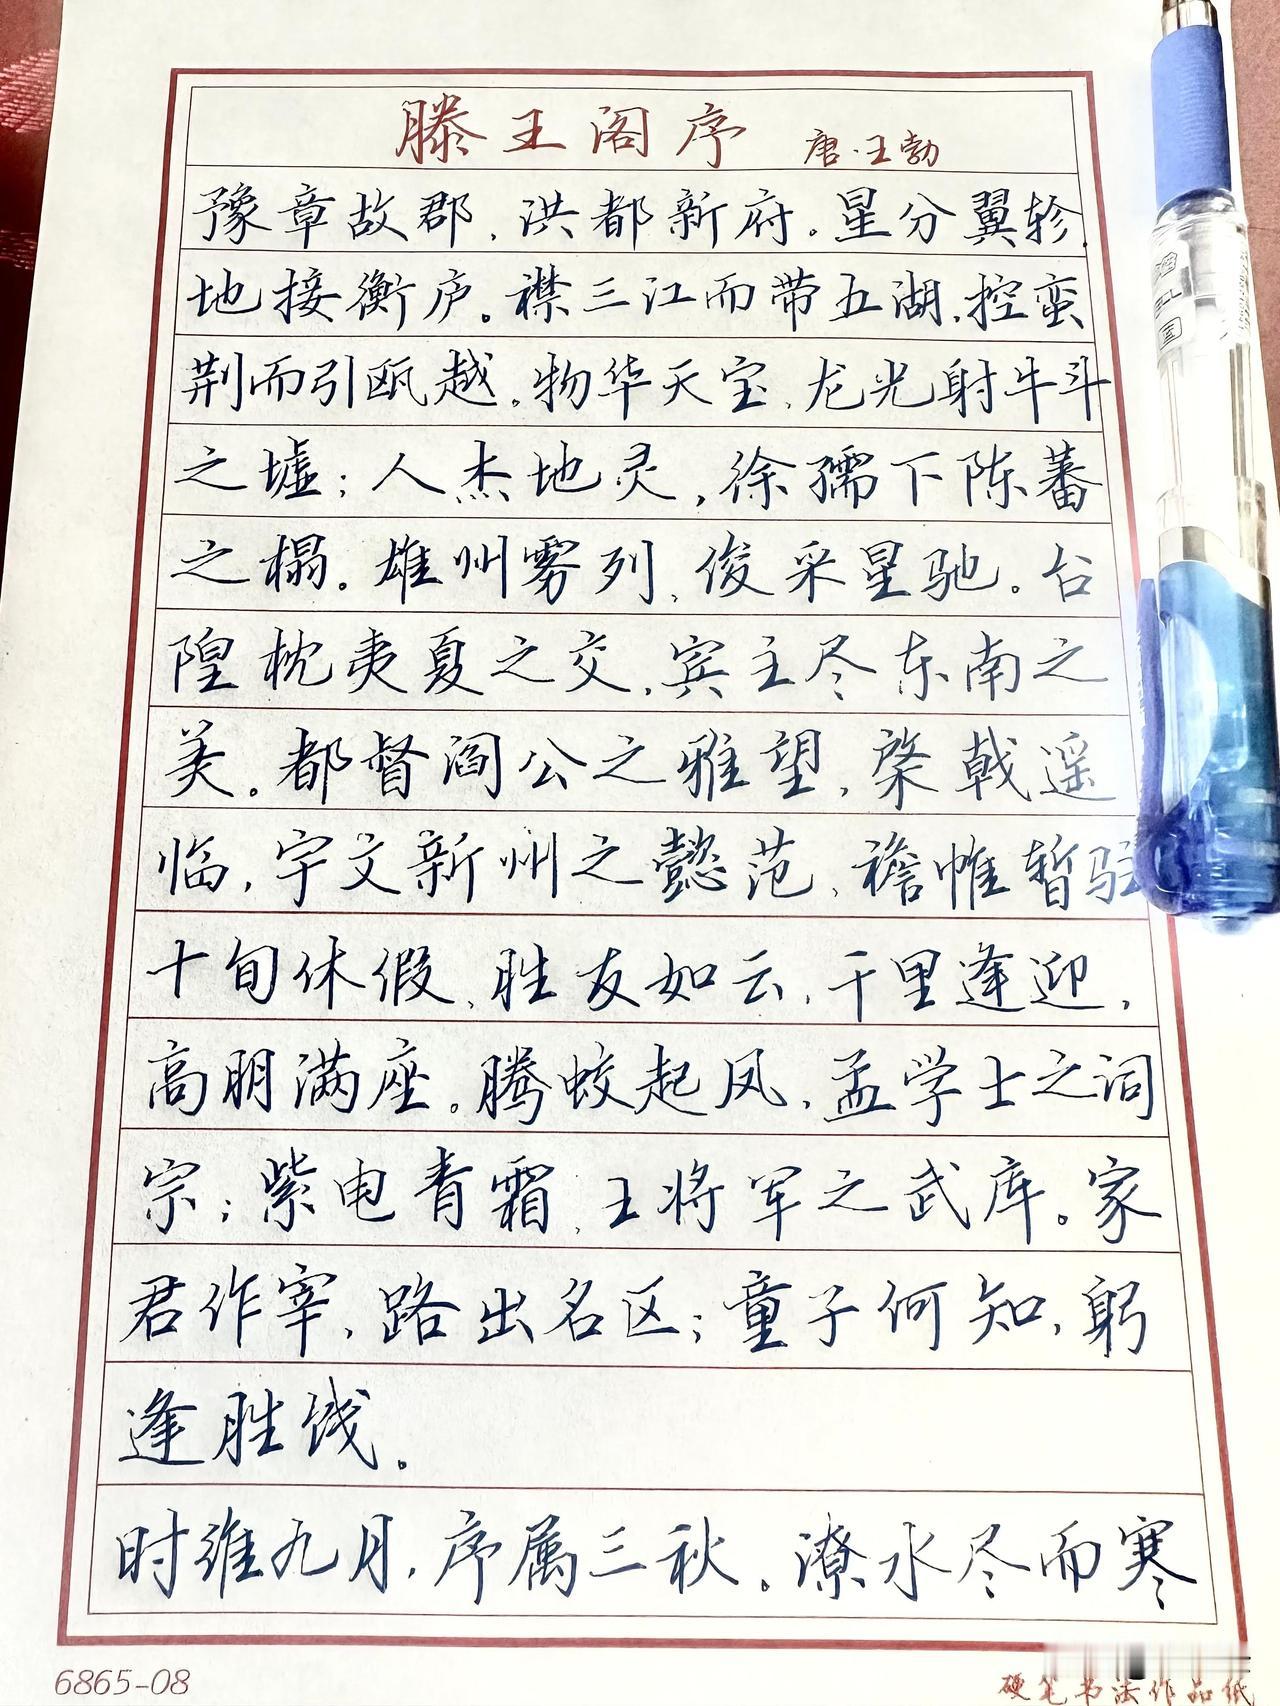 滕王阁序 唐·王勃
豫章故郡，洪都新府。星分翼轸，
地接衡庐。襟三江而带五湖，控蛮
荆而引瓯越。物华天宝，龙光射牛斗
之墟；人杰地灵，徐孺下陈蕃
之榻。雄州雾列，俊采星驰。台
隍枕夷夏之交，宾主尽东南之
美。都督阎公之雅望，棨戟遥
临，宇文新州之懿范，襜帷暂驻
十旬休假，胜友如云，千里逢迎，
高朋满座。腾蛟起凤，孟学士之词
宗；紫电青霜，王将军之武库。家
君作宰，路出名区；童子何知，躬
逢胜饯。
时维九月，序属三秋。潦水尽而寒
6865-08
硬笔书法作品纸